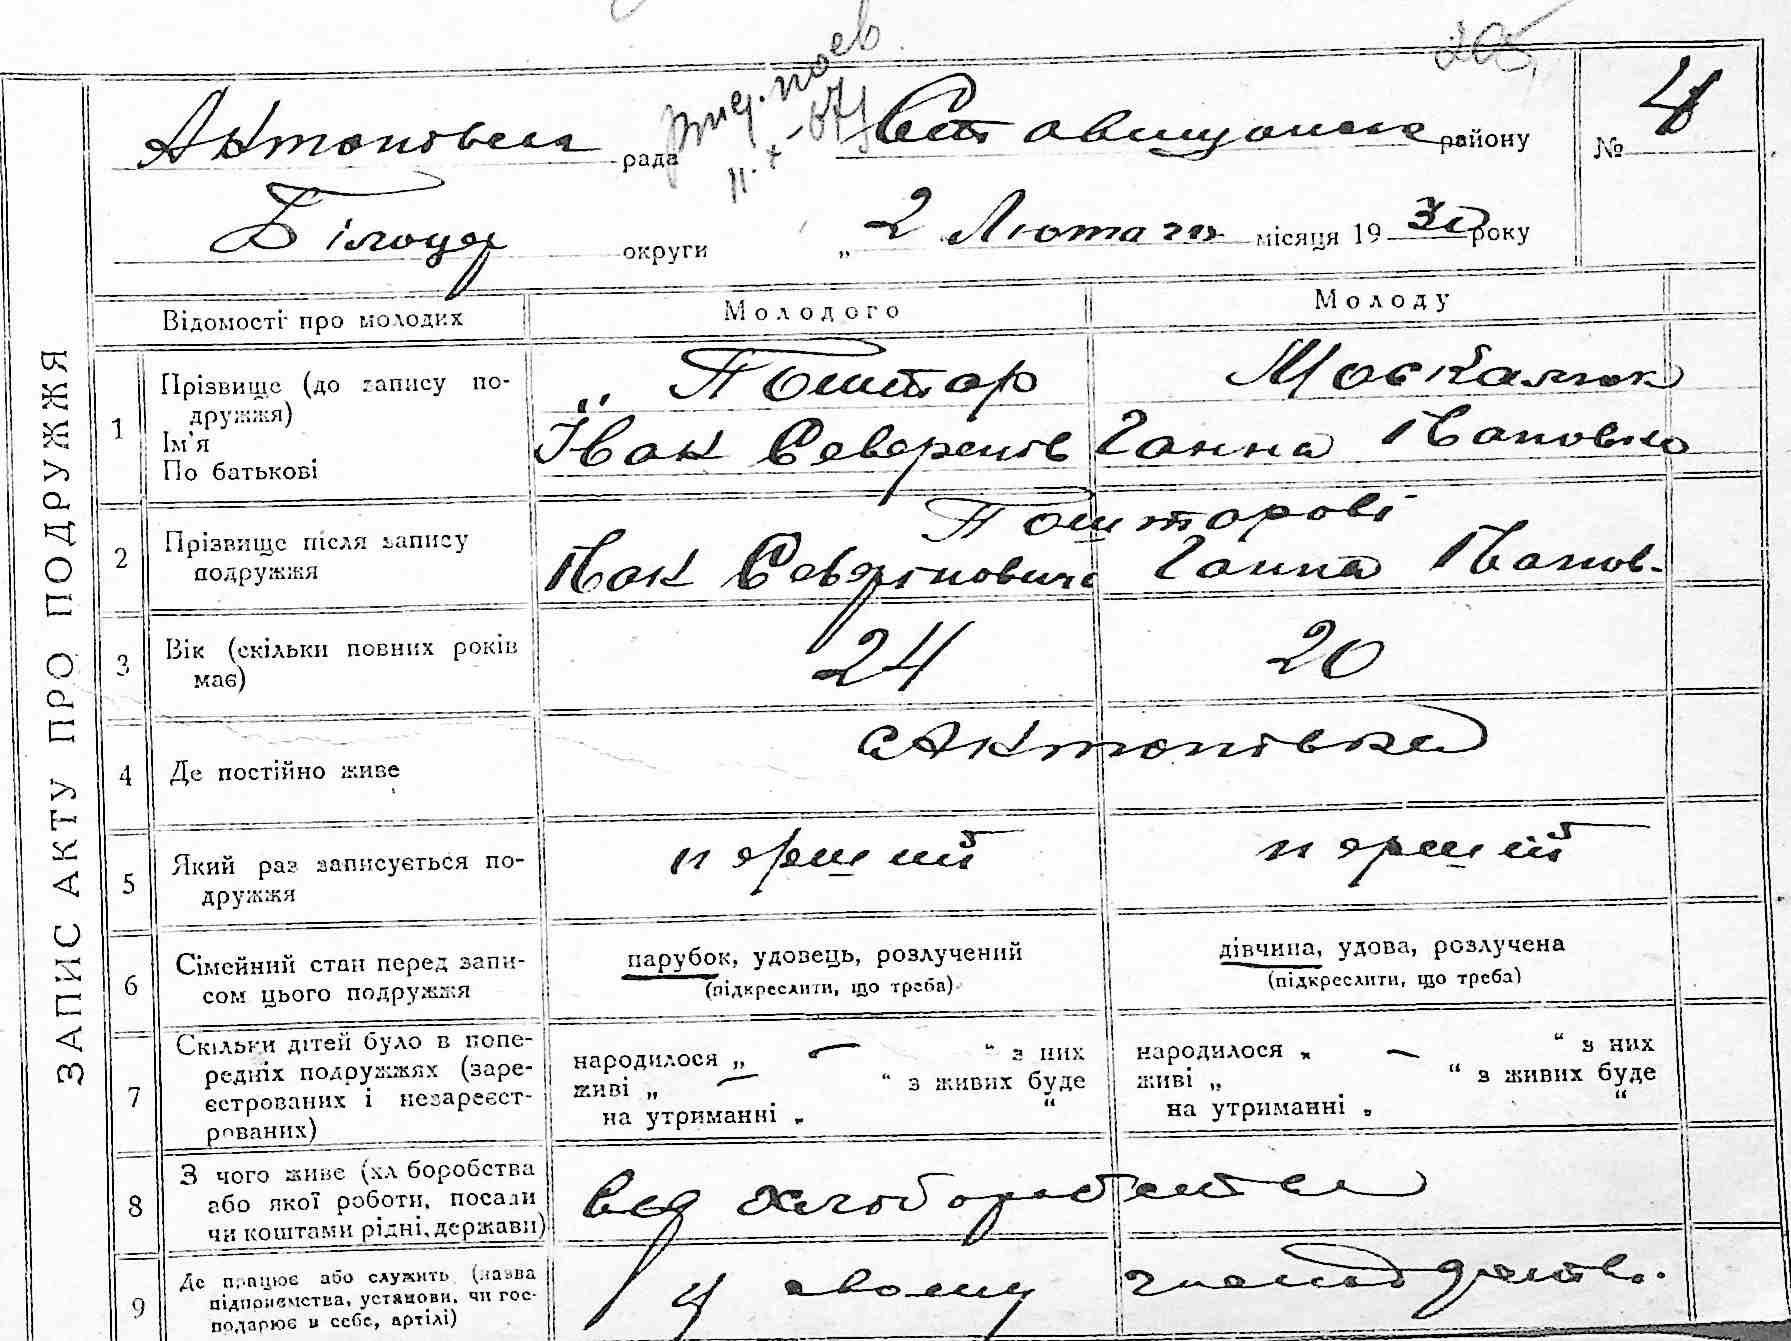 ЗАПИС АКТУ ПРО ПОДРУЖЖЯ
20
Антонівська рада Ставищанськ району № 4
Білоцер округи „ 2 Лютого місяця 19 30 року
Відомості про молодих Молодого Молоду
1 Прізвище (до запису по-
дружжя) Поштар Москалюк
Ім'я
По батькові Іван Северенів Ганна Івановна
2 Прізвище після запису
подружжя Поштарові
Іван Северінович Ганна Іванов-
3 Вік (скільки повних років
має) 24 20
4 Де постійно живе с Антонівка
5 Який раз записується по-
дружжя перший перший
6 Сімейний стан перед запи-
сом цього подружжя парубок, удовець, розлучений дівчина, удова, розлучена
(підкреслити, що треба) (підкреслити, що треба)
7 Скільки дітей було в попе-
редніх подружжях (заре-
єстрованих і незареєст-
рованих)
народилося „ — “ з них народилося „ — “ з них
живі „ — “ з живих буде живі „ “ з живих буде
на утриманні „ “ на утриманні „ “
8 З чого живе (хл боробства
або якої роботи, посади
чи коштами рідні, держави) від хліборобства
9 Де працює або служить (назва
підприємства, установи, чи гос-
подарює в себе, артілі) у свому господарстві.